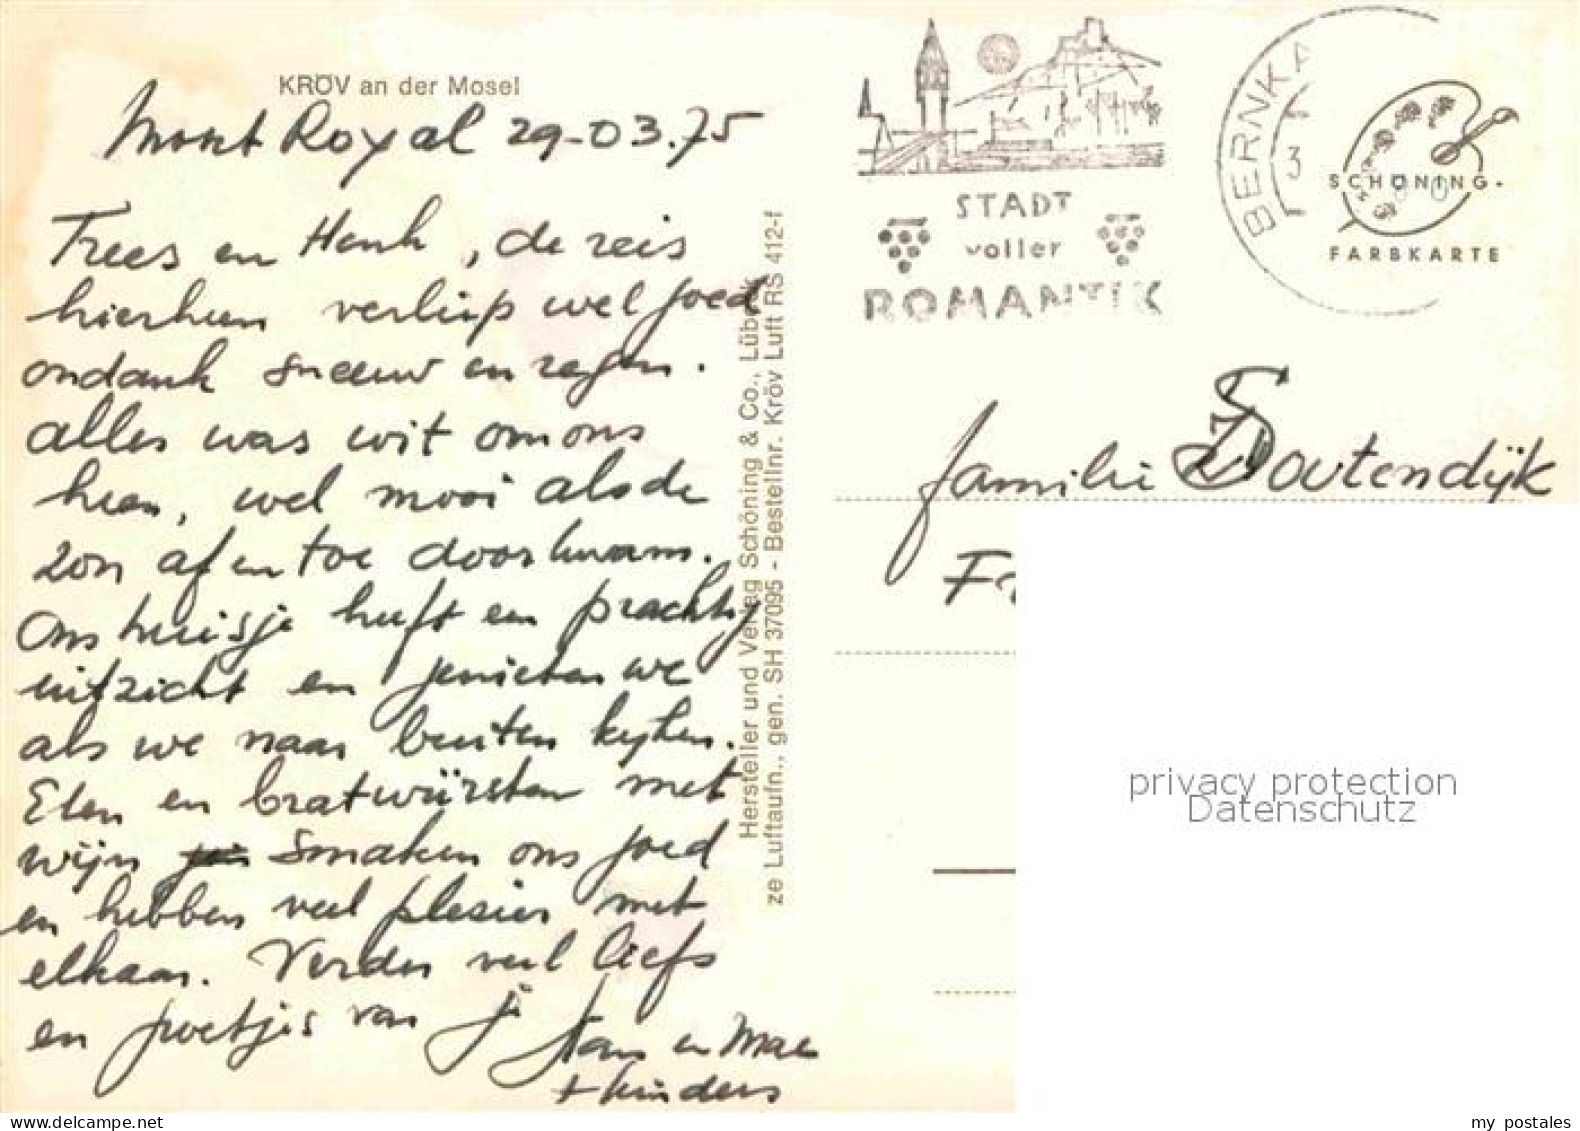 KRÖV an der Mosel
Mont Royal 29-03.75
Trees en Henk, de reis
hierheen verliep wel goed
ondank sneeuw en regen.
alles was wit om ons
heen, wel mooi als de
zon af en toe doorkwam.
Ons huisje heeft een prachtig
uitzicht en genieten we
als we naar buiten kijken.
Eten en bratwürsten met
wijn smaken ons goed
en hebben veel plesier met
elkaar. Verder veel liefs
en groetjes van je
Hans en Mae
+ kinders
Hersteller und Verlag Schöning & Co., Lübeck
ze Luftaufn., gen. SH 37095 - Bestellnr. Kröv Luft RS 412-f
STADT
voller
ROMANTIK
BERNKA
3
SCHÖNING-
FARBKARTE
familie Doutendijk
privacy protection
Datenschutz
my postales